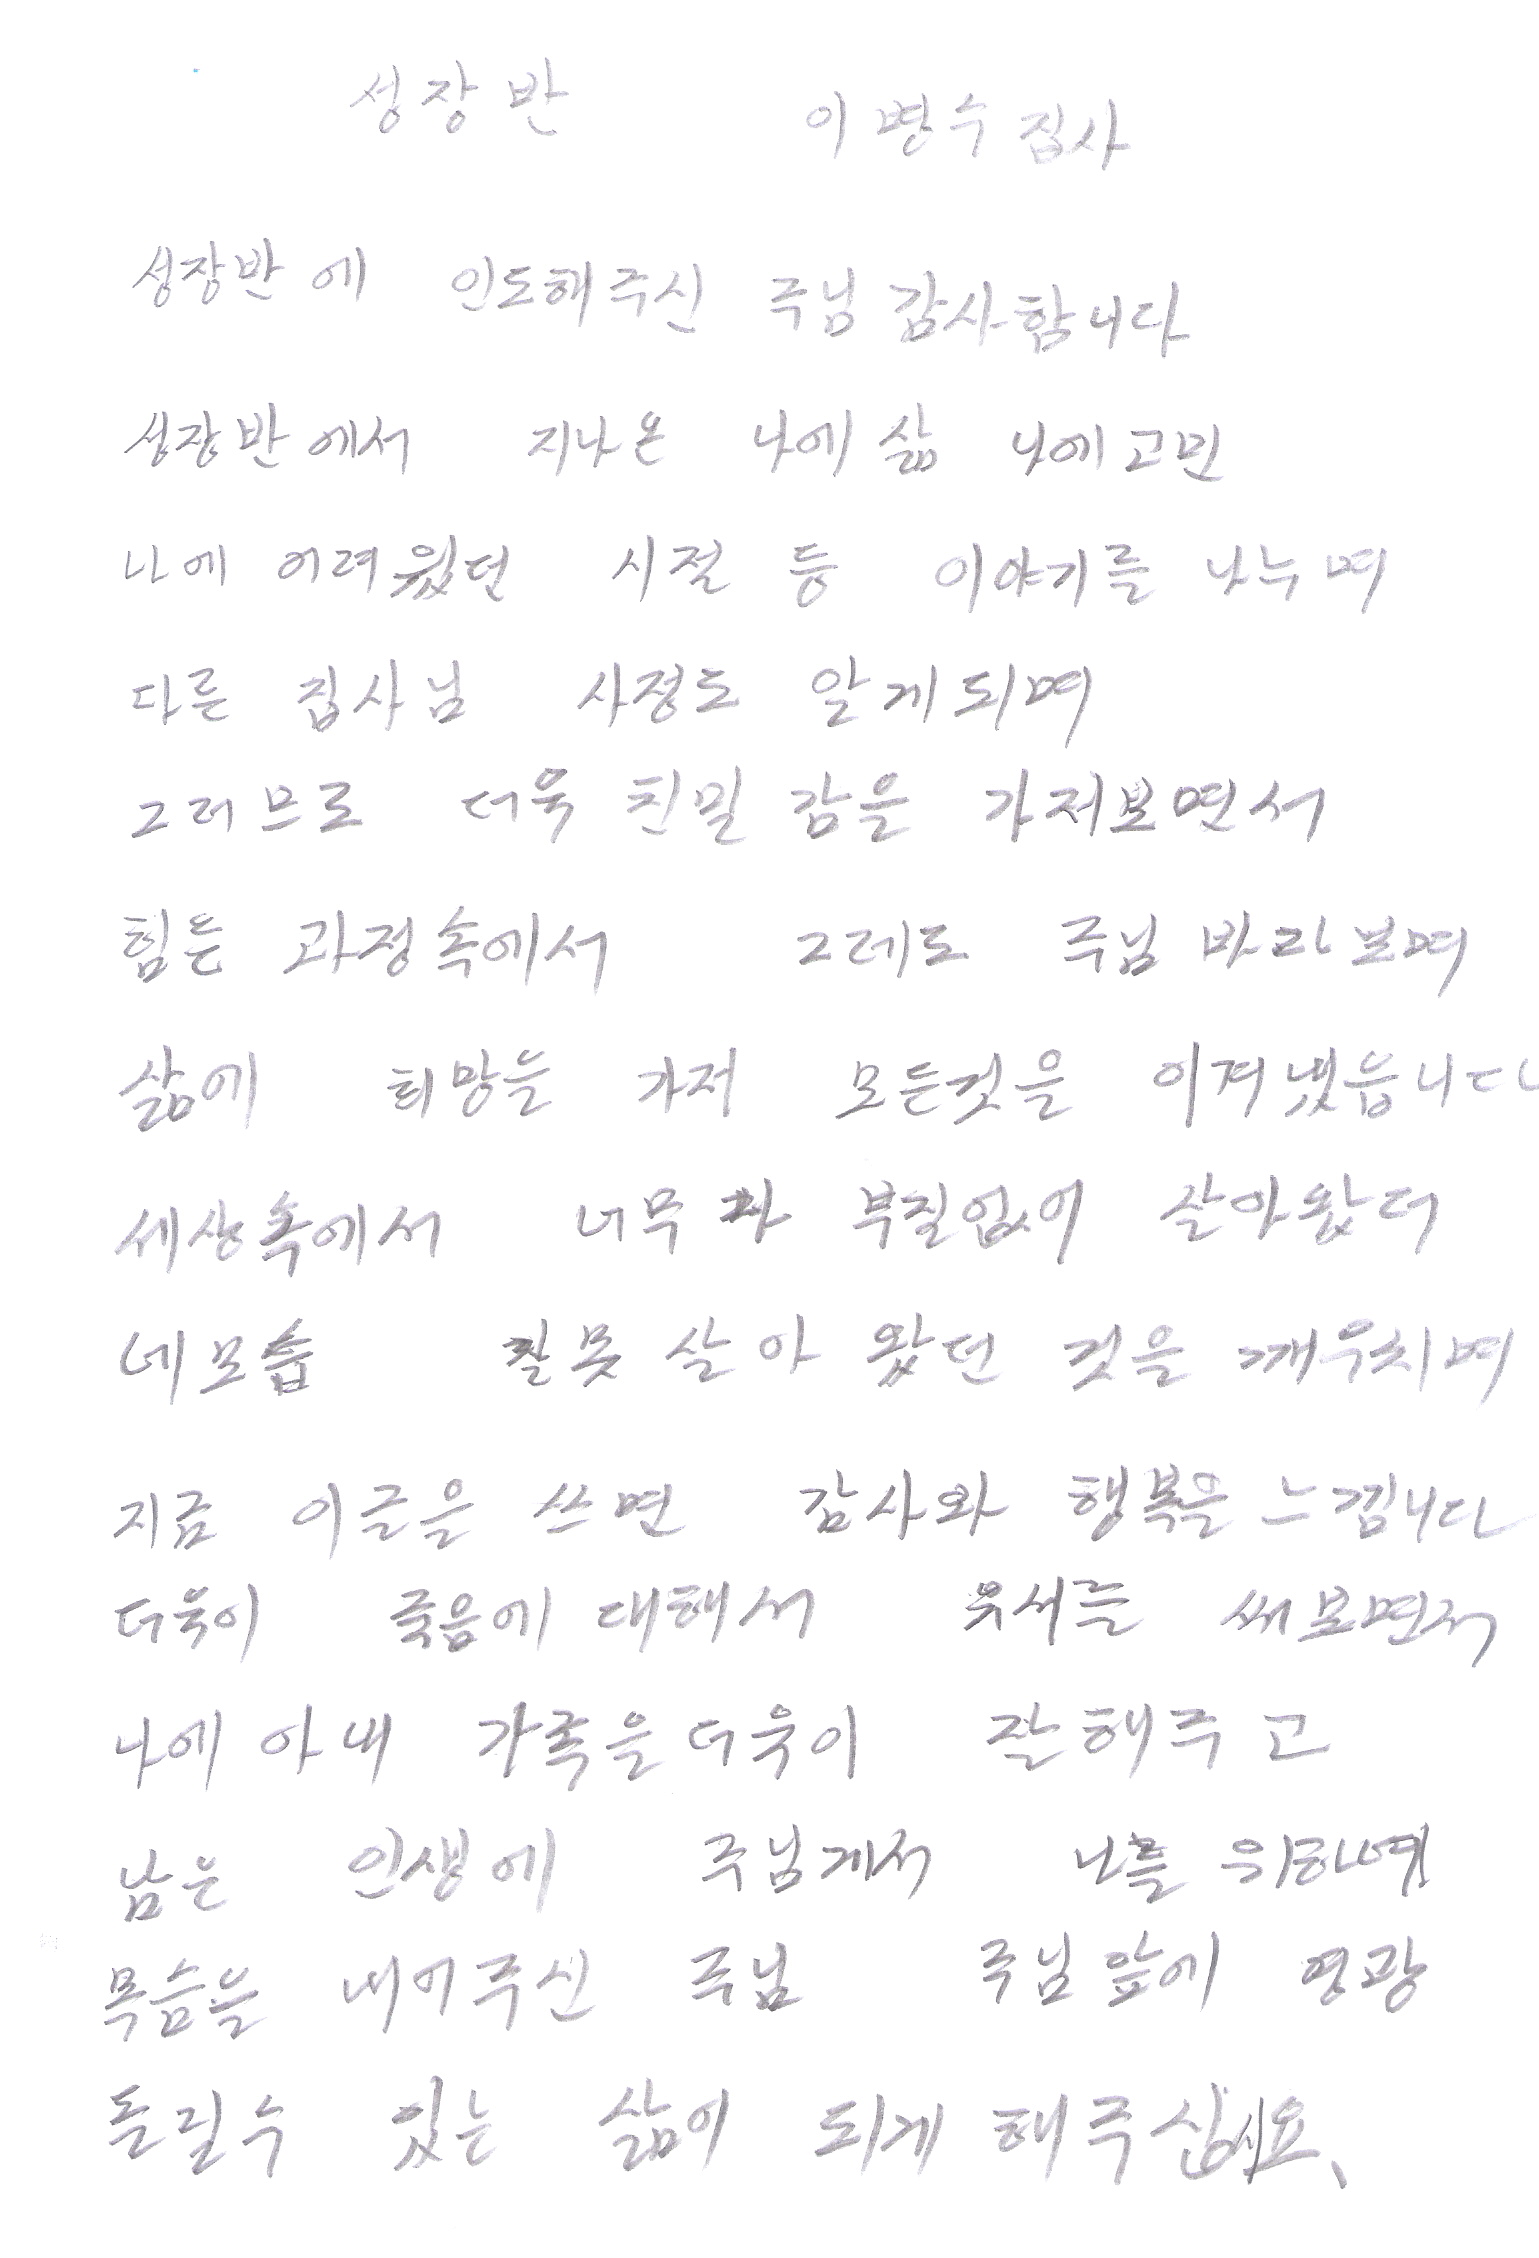 성장반 이병수 집사
성장반에 인도해주신 주님 감사합니다
성장반에서 지나온 나에 삶 나에 고민
나에 어려웠던 시절 등 이야기를 나누며
다른 집사님 사정도 알게되며
그러므로 더욱 친밀감을 가저보면서
힘든 과정속에서 그레도 주님 바라보며
삶에 희망을 가저 모든것을 이겨냈읍니다
세상속에서 너무 부질없이 살아왔더
네모습 잘못 살아 왔던 것을 깨우치며
지금 이글을 쓰면 감사와 행복을 느낌니다
더욱이 죽음에 대해서 유서를 써보면서
나에 아내 가족을 더욱이 잘해주고
남은 인생에 주님게서 나를 위하여
목숨을 내어주신 주님 주님앞에 영광
돌릴수 있는 삶이 되게 해주십시요